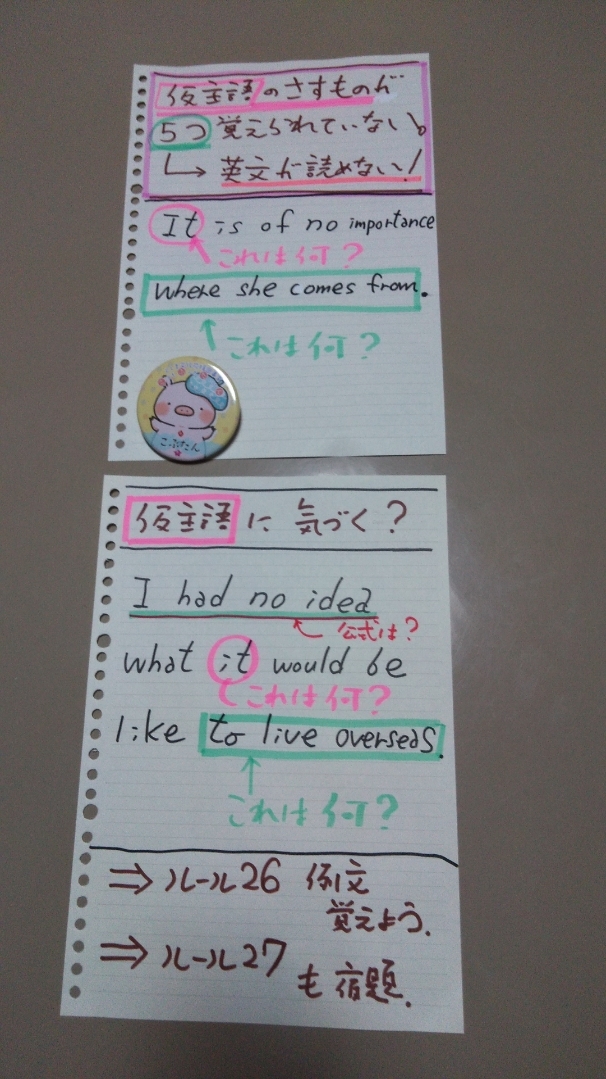 仮主語のさすものが
5つ 覚えられていないと
↳ 英文が読めない!
It is of no importance
これは何?
where she comes from.
これは何?
こぶたん
仮主語に気づく?
I had no idea
公式は?
what it would be
これは何?
like to live overseas.
これは何?
⇒ ルール26 例文
覚えよう.
⇒ ルール27
も宿題.